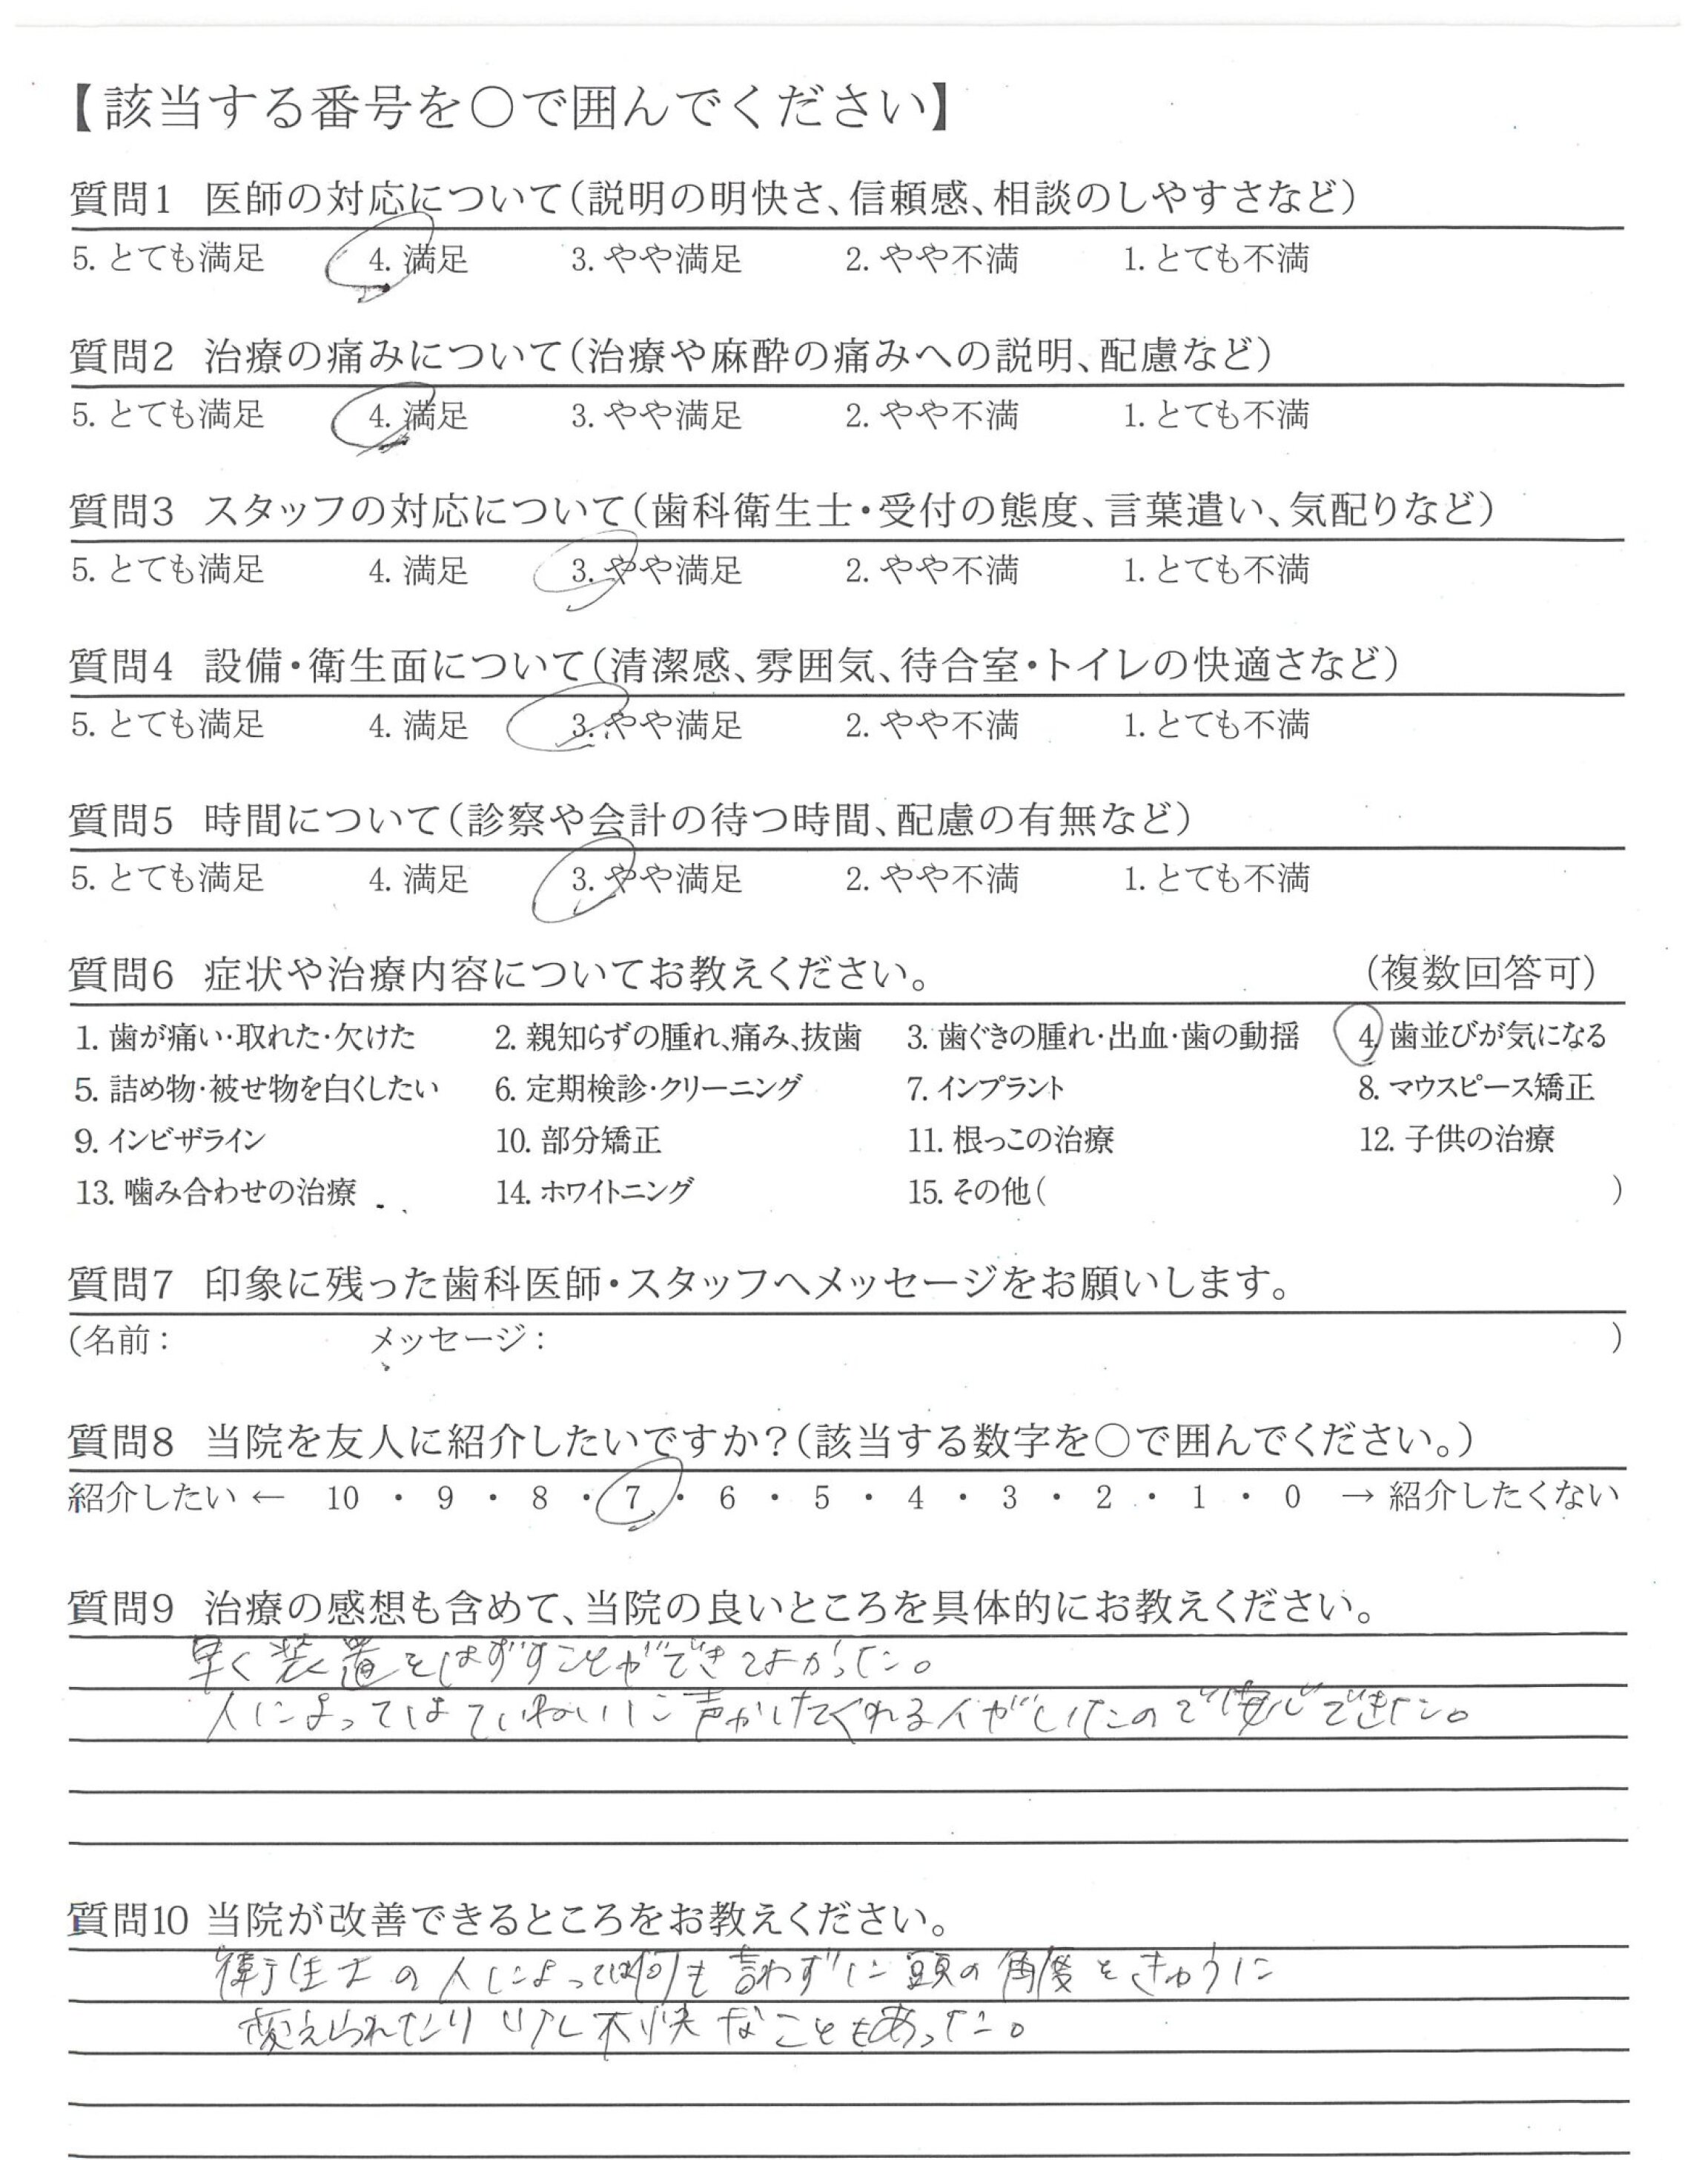 【該当する番号を○で囲んでください】
質問1 医師の対応について(説明の明快さ、信頼感、相談のしやすさなど)
5. とても満足 4. 満足 3. やや満足 2. やや不満 1. とても不満
質問2 治療の痛みについて(治療や麻酔の痛みへの説明、配慮など)
5. とても満足 4. 満足 3. やや満足 2. やや不満 1. とても不満
質問3 スタッフの対応について(歯科衛生士・受付の態度、言葉遣い、気配りなど)
5. とても満足 4. 満足 3. やや満足 2. やや不満 1. とても不満
質問4 設備・衛生面について(清潔感、雰囲気、待合室・トイレの快適さなど)
5. とても満足 4. 満足 3. やや満足 2. やや不満 1. とても不満
質問5 時間について(診察や会計の待つ時間、配慮の有無など)
5. とても満足 4. 満足 3. やや満足 2. やや不満 1. とても不満
質問6 症状や治療内容についてお教えください。 (複数回答可)
1. 歯が痛い・取れた・欠けた 2. 親知らずの腫れ、痛み、抜歯 3. 歯ぐきの腫れ・出血・歯の動揺 4. 歯並びが気になる
5. 詰め物・被せ物を白くしたい 6. 定期検診・クリーニング 7. インプラント 8. マウスピース矯正
9. インビザライン 10. 部分矯正 11. 根っこの治療 12. 子供の治療
13. 噛み合わせの治療 14. ホワイトニング 15. その他( )
質問7 印象に残った歯科医師・スタッフへメッセージをお願いします。
(名前: メッセージ: )
質問8 当院を友人に紹介したいですか?(該当する数字を○で囲んでください。)
紹介したい ← 10 ・ 9 ・ 8 ・ 7 ・ 6 ・ 5 ・ 4 ・ 3 ・ 2 ・ 1 ・ 0 → 紹介したくない
質問9 治療の感想も含めて、当院の良いところを具体的にお教えください。
早く装置をはずすことができてよかった。
人によってはていねいに声かけてくれる人がいたので安心できた。
質問10 当院が改善できるところをお教えください。
衛生士の人によっては何も言わずに頭の角度をきゅうに
変えられたり少し不快なこともあった。